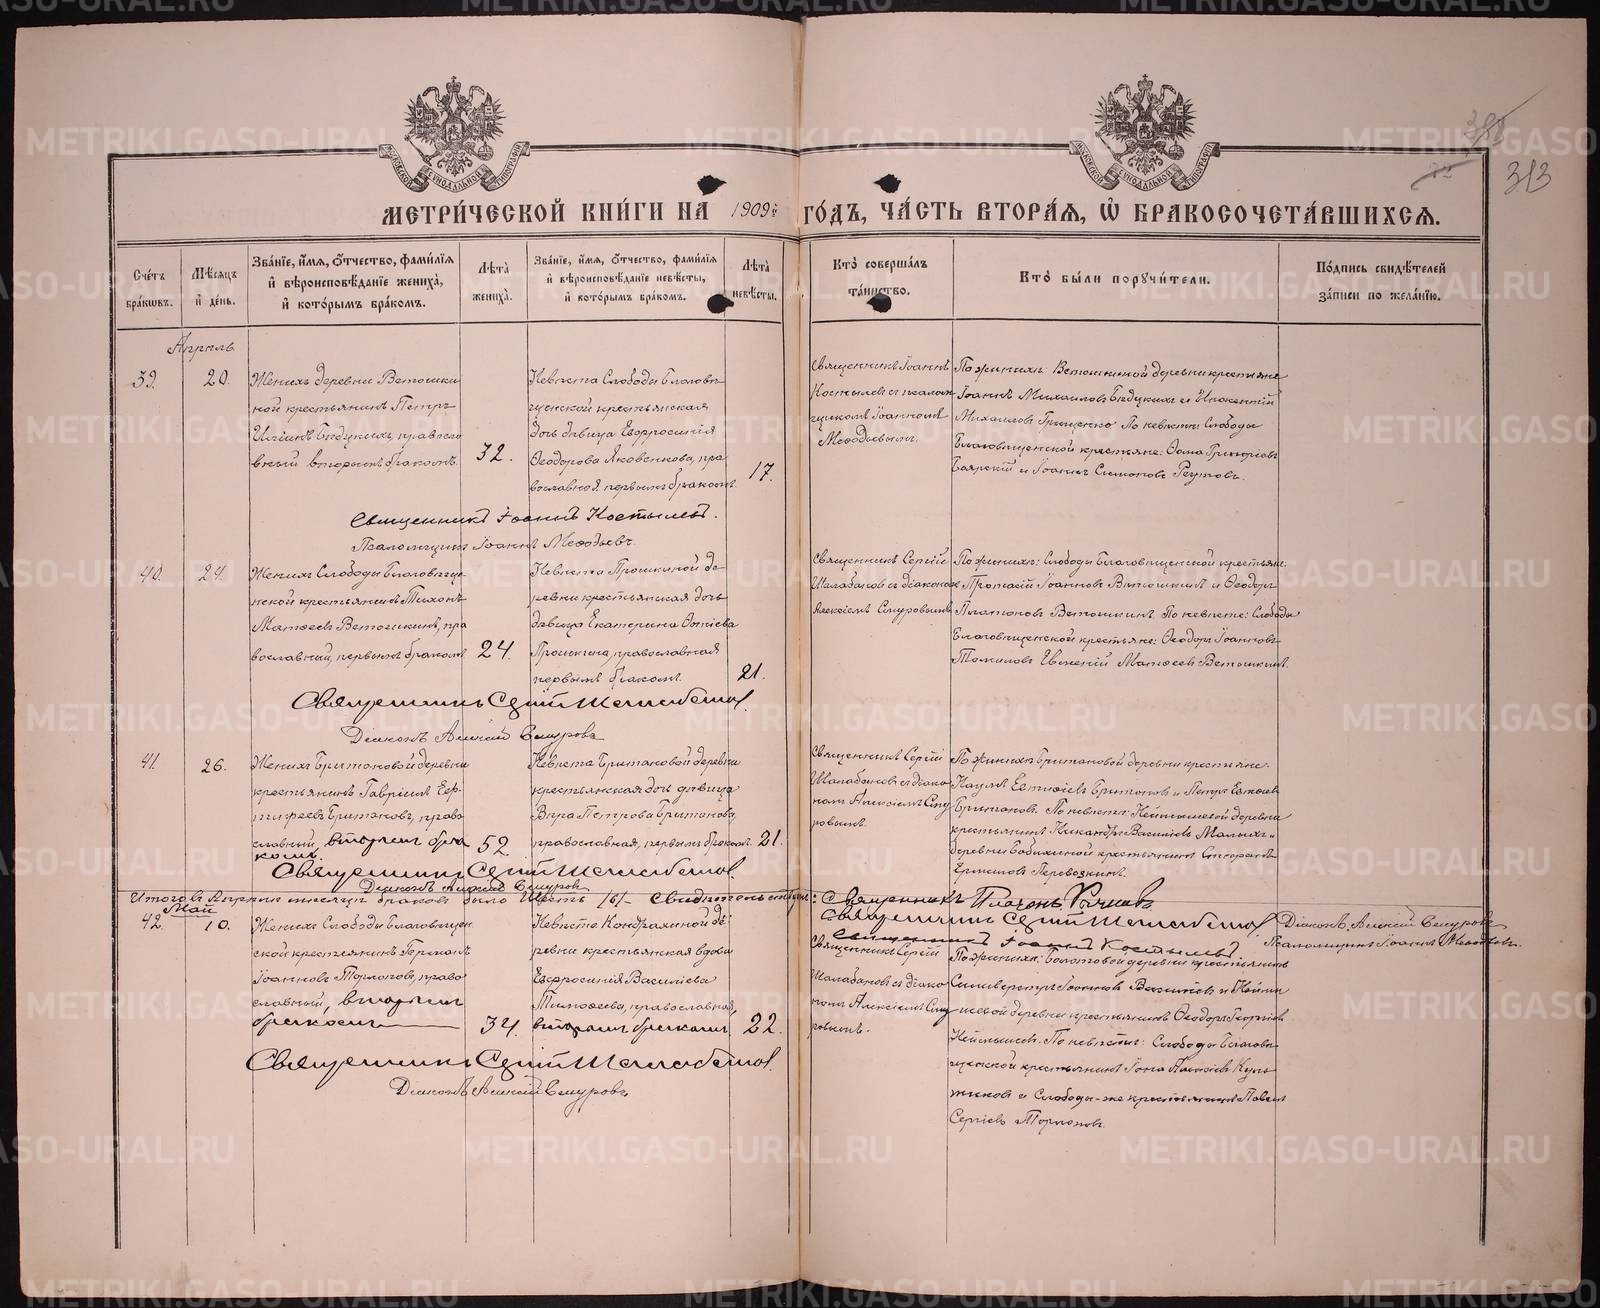 МЕТРИ́ЧЕСКОЙ КНИ́ГИ НА 1909й ГО́ДЪ, ЧА́СТЬ ВТОРА́Я, Ѡ БРАКОСОЧЕТА́ВШИХСЯ.
313
Сче́тъ бра́ковъ.
Мѣ́сяцъ и де́нь.
Зва́нїе, и́мя, ѻ́тчество, фами́лїя
и вѣроисповѣ́данїе жениха̀,
и кото́рымъ бра́комъ.
Лѣ́та жениха̀.
Зва́нїе, и́мя, ѻ́тчество, фами́лїя
и вѣроисповѣ́данїе невѣ́сты,
и кото́рымъ бра́комъ.
Лѣ́та невѣ́сты.
Кто̀ соверша́лъ
та́инство.
Кто̀ бы́ли поручи́тели.
По́дпись свидѣ́телей
за́писи по жела́нїю.
Апрѣль
39.
20.
Женихъ деревни Ветошки
ной крестьянинъ Петръ
Иліинъ Бѣдцкихъ, правосла
вный вторымъ бракомъ.
32.
Невѣста Слободы Благовѣ
щенской крестьянская
дочь дѣвица Евфросинія
Ѳеодорова Яковенкова, пра
вославная первымъ бракомъ.
17.
Священникъ Іоаннъ
Костылевъ с псалом
щикомъ Іоанномъ
Меѳодьевымъ.
По женихѣ: Ветошкиной деревни крестьяне
Іоаннъ Михаиловъ Бѣдцкихъ и Инокентій
Михаиловъ Грищенко По невѣстѣ: Слободы
Благовѣщенской крестьяне: Ѳома Григоріевъ
Боярскій и Іоаннъ Симоновъ Реутовъ.
Священникъ Іоаннъ Костылевъ.
Псаломщикъ Іоаннъ Меѳодьевъ.
40.
24.
Женихъ Слободы Благовѣще
нской крестьянинъ Тихонъ
Матѳеевъ Ветошкинъ, пра
вославный, первымъ бракомъ
24.
Невѣста Прошкиной де
ревни крестьянская дочь
дѣвица Екатерина
Прошкина, православная
первымъ бракомъ.
21.
Священникъ Сергій
Шалабановъ с діакономъ
Алексіемъ Смуровымъ
По женихѣ: Слободы Благовѣщенской крестьяне:
Протасій Іоанновъ Ветошкинъ и Ѳеодоръ
Платоновъ Ветошкинъ По невѣстѣ: Слободы
Благовѣщенской крестьяне: Ѳеодоръ Іоанновъ
Томиловъ Евгеній Матѳеевъ Ветошкинъ.
Священникъ Сергій Шалабановъ.
Діаконъ Алексій Смуровъ
41.
26.
Женихъ Британовой деревни
крестьянинъ Гавріилъ Евѳ
Британовъ, право
славный, вторымъ бра
комъ
52
Невѣста Британовой деревни
крестьянская дочь дѣвица
Вѣра Петрова Бритонова,
православная, первымъ бракомъ.
21.
Священникъ Сергій
Шалабановъ с діако
номъ Алексіемъ Сму
ровымъ.
По женихѣ Британовой деревни крестьяне:
Наумъ Евѳиміевъ Британовъ и Петръ
Британовъ. По невѣстѣ: деревни
крестьянинъ Никандръ Василіевъ Малыхъ и
деревни Бабихиной крестьянинъ
Ермиловъ Перевозкинъ.
Священникъ Сергій Шалабановъ.
Діаконъ Алексій Смуровъ
Итого в Апрѣлѣ мѣсяцѣ браковъ было Шесть /6/ Свидѣтельствуемъ: Священникъ Платонъ
Священникъ Сергій Шалабановъ. Діаконъ Алексій Смуровъ
Священникъ Іоаннъ Костылевъ Псаломщикъ Іоаннъ Меѳодьевъ.
Май
42.
10.
Женихъ Слободы Благовѣщен
ской крестьянинъ
Іоанновъ право
славный, вторымъ
бракомъ
34.
Невѣста де
ревни крестьянская вдова
Евфросинія Василіева
Тимоѳеева, православная,
вторымъ бракомъ.
22.
Священникъ Сергій
Шалабановъ с діако
номъ Алексіемъ Сму
ровымъ.
По женихѣ: Болотовой деревни крестьянинъ
Іоанновъ Василіевъ и
деревни крестьянинъ Ѳеодоръ Георгіевъ
По невѣстѣ: Слободы Благовѣ
щенской крестьянинъ Іона Алексіевъ
и Слободы-же крестьянинъ Павелъ
Сергіевъ
Священникъ Сергій Шалабановъ.
Діаконъ Алексій Смуровъ.
METRIKI.GASO-URAL.RU